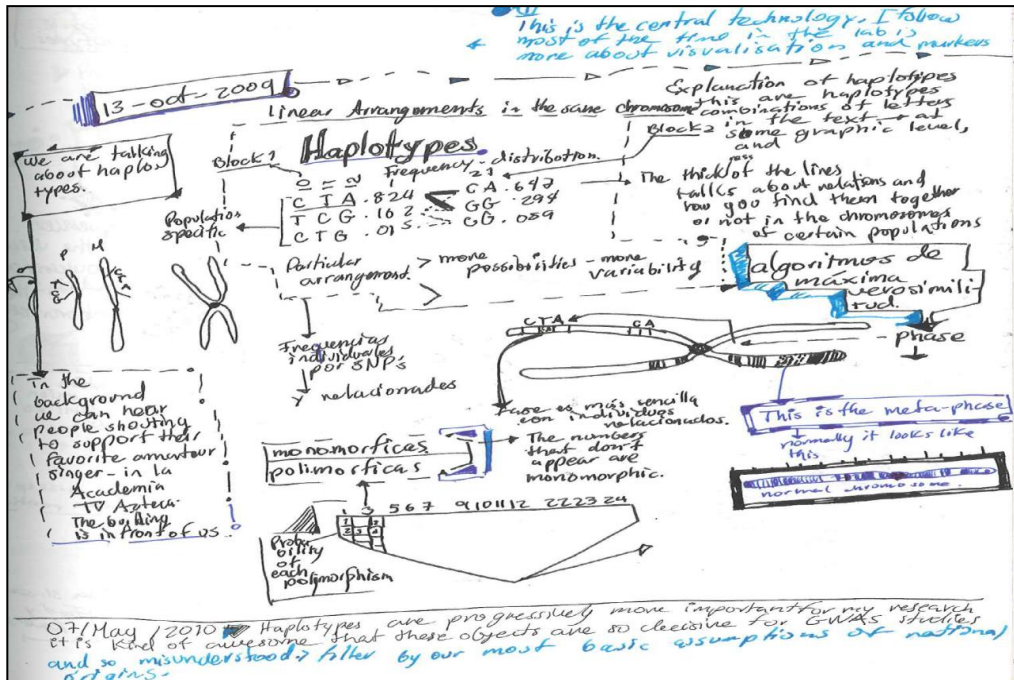 This is the central technology. I follow
most of the time in the lab is
more about visualisation and markers
13-oct-2009
Linear Arrangements in the same chromosome
Explanation of haplotipes
this are haplotipes
combinations of letters
in the text - at
some graphic level,
and
we are talking
about haplo
types.
Block 1
Haplotypes.
Block 2
Frequency - distribution.
C T A .824
T C G .162
C T G .015
CA .647
GG .294
CG .059
Population
specific
The thick of the lines
tallks about relations and
how you find them together
or not in the chromosomes
of certain populations
Particular
arrangement.
> more
possibilities - more
variability
algoritmos de
máxima
verosimili
tud.
phase
CTA
CA
Frequencias
individuales
por SNPs
y relacionados
Fase es más sencilla
con individuos
relacionados.
The numbers
that don't
appear are
monomorphic.
This is the meta-phase
normally it looks like
this
normal chromosome.
in the
background
we can hear
people shouting
to support their
favorite amateur
singer - in la
Academia
TV Azteca
The building
is in front of us.
monomorficas
polimorficas
5 6 7 9 10 11 12 22 23 24
Proba
bility
of
each
polimorphism
07/May/2010 Haplotypes are progressively more important for my research
it is kind of awesome that these objects are so decisive for GWAS studies
and so misunderstood > filter by our most basic assumptions of national
origins.